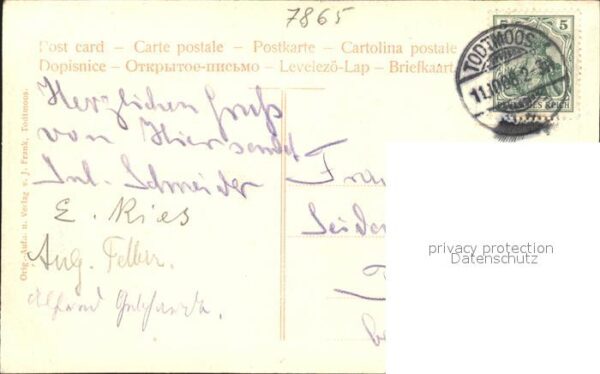 7865
Post card – Carte postale – Postkarte – Cartolina postale
Dopisnice – Открытое-письмо – Levelező-Lap – Briefkaart
5
TODTMOOS.
DEUTSCHES REICH
Orig.-Aufn. u. Verlag v. J. Frank, Todtmoos.
Herzlichen Gruß
von Hier sendet
Schneider
E. Ries
Aug.
Frau
Seiden
privacy protection
Datenschutz